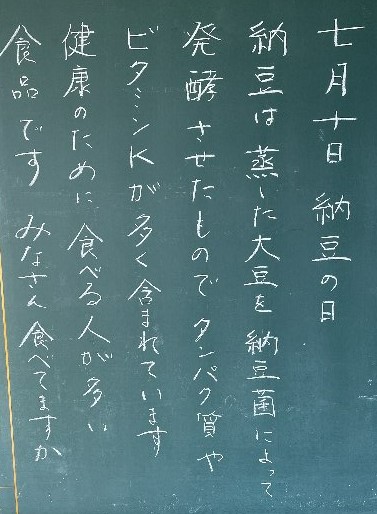 七月十日 納豆の日
納豆は蒸した大豆を納豆菌によって
発酵させたもので タンパク質や
ビタミンKが多く含まれています
健康のために食べる人が多い
食品です みなさん食べてますか